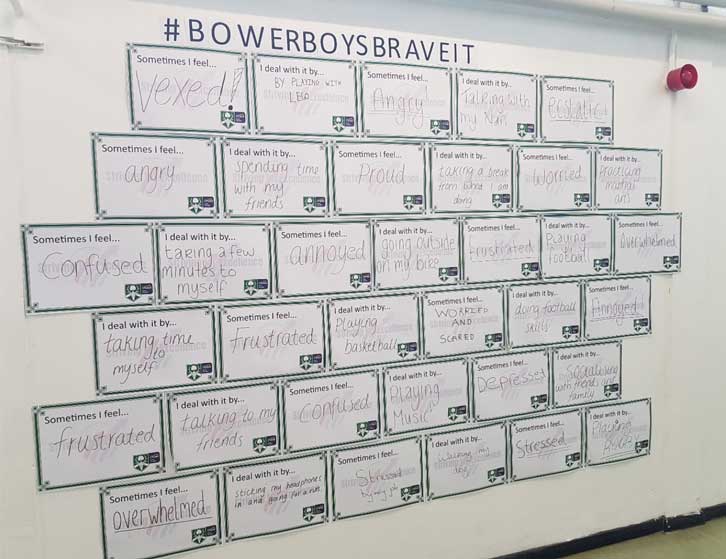 #BOWERBOYSBRAVEIT
Sometimes I feel...
Vexed!
I deal with it by...
BY PLAYING WITH
LEGO
Sometimes I feel...
Angry
I deal with it by...
Talking with
my Nan
Sometimes I feel...
ecstatic
Sometimes I feel...
angry
I deal with it by...
spending time
with my
friends
Sometimes I feel...
Proud
I deal with it by...
taking a break
from what I am
doing
Sometimes I feel...
Worried
I deal with it by...
Practicing
martial
arts
Sometimes I feel...
Confused
I deal with it by...
taking a few
minutes to
myself
Sometimes I feel...
annoyed
I deal with it by...
going outside
on my bike
Sometimes I feel...
Frustrated
I deal with it by...
Playing
football
Sometimes I feel...
Overwhelmed
I deal with it by...
taking time
to
myself
Sometimes I feel...
Frustrated
I deal with it by...
Playing
basketball
Sometimes I feel...
WORRIED
AND
SCARED
I deal with it by...
doing football
skills
Sometimes I feel...
Annoyed
Sometimes I feel...
frustrated
I deal with it by...
talking to my
friends
Sometimes I feel...
Confused
I deal with it by...
Playing
Music
Sometimes I feel...
Depressed
I deal with it by...
with friends and
family
Sometimes I feel...
overwhelmed
I deal with it by...
sticking my headphones
in and going for a run
Sometimes I feel...
Stressed
by my job
I deal with it by...
Walking my
dog
Sometimes I feel...
Stressed
I deal with it by...
Playing